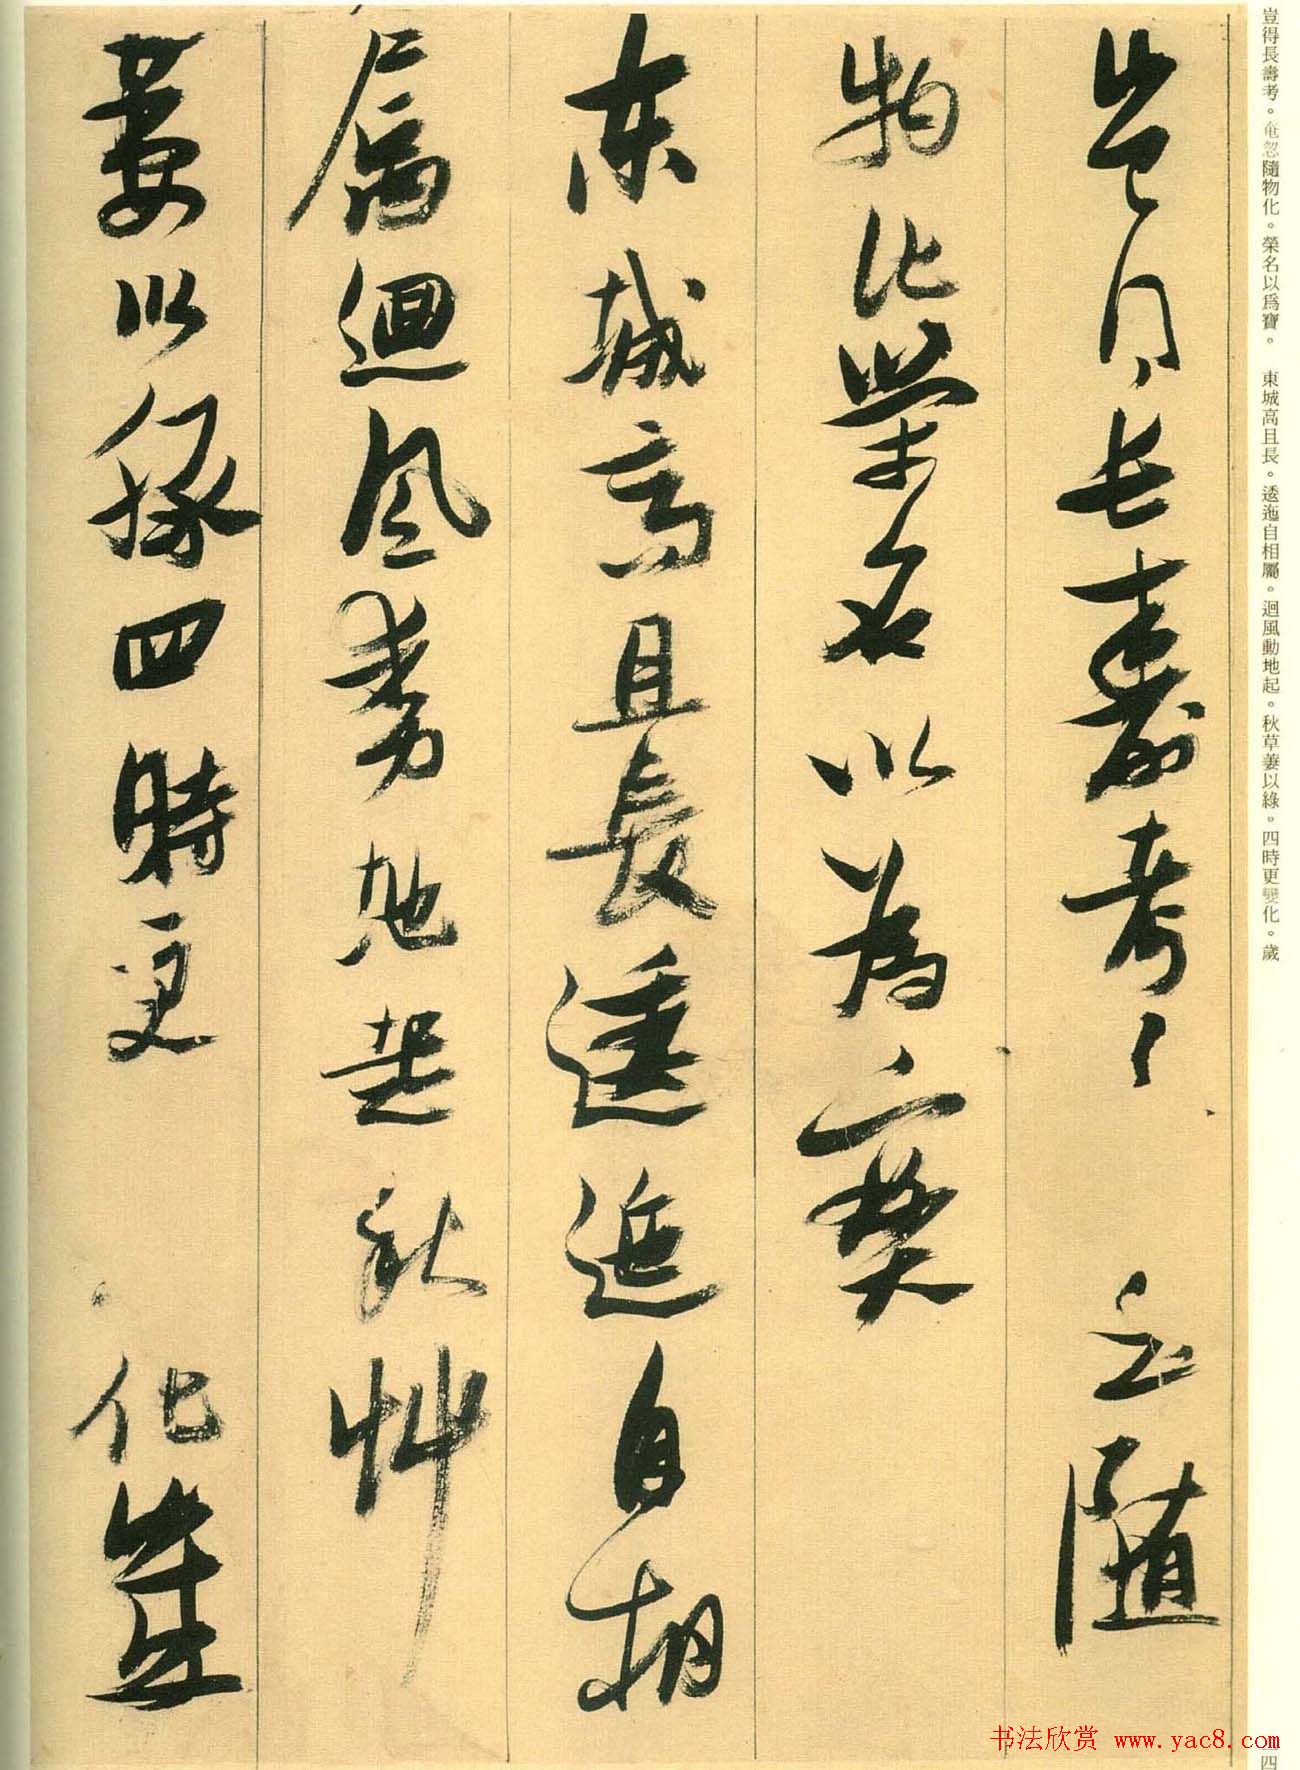 豈得長壽考。奄忽隨物化。榮名以爲寶。　東城高且長。逶迤自相屬。迴風動地起。秋草萋以綠。四時更變化。歲
豈得長壽考忽隨
物化榮名以為寶
东城高且長逶迤自相
屬迴風動地起秋艸
萋以綠四時更化歲
书法欣赏 www.yac8.com
四